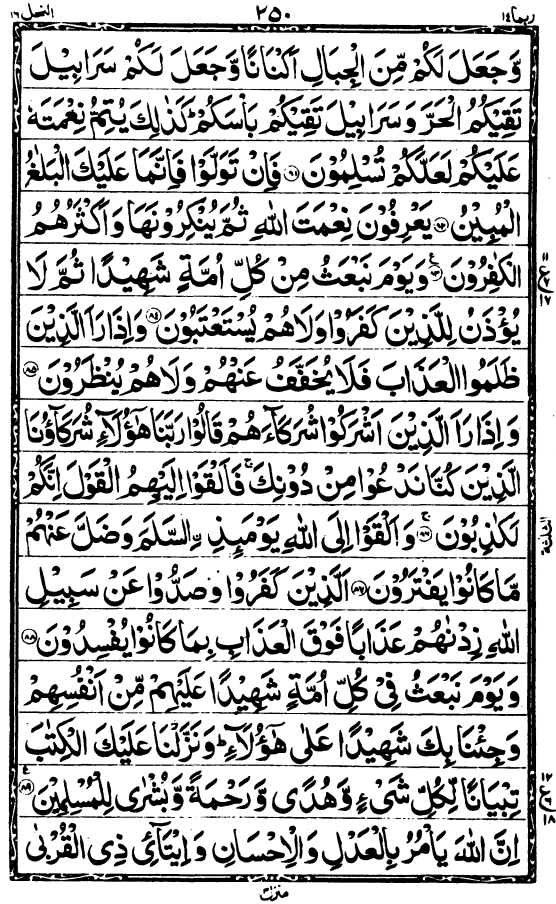 ربما ١٤ ٢٥٠ النحل ١٦
وَّجَعَلَ لَكُمْ مِّنَ الْجِبَالِ اَكْنَانًا وَّجَعَلَ لَكُمْ سَرَابِيْلَ
تَقِيْكُمُ الْحَرَّ وَسَرَابِيْلَ تَقِيْكُمْ بَاْسَكُمْ ؕ كَذٰلِكَ يُتِمُّ نِعْمَتَهٗ
عَلَيْكُمْ لَعَلَّكُمْ تُسْلِمُوْنَ ﴿۸۱﴾ فَاِنْ تَوَلَّوْا فَاِنَّمَا عَلَيْكَ الْبَلٰغُ
الْمُبِيْنُ ﴿۸۲﴾ يَعْرِفُوْنَ نِعْمَتَ اللّٰهِ ثُمَّ يُنْكِرُوْنَهَا وَاَكْثَرُهُمُ
الْكٰفِرُوْنَ ﴿۸۳﴾ وَيَوْمَ نَبْعَثُ مِنْ كُلِّ اُمَّةٍ شَهِيْدًا ثُمَّ لَا
يُؤْذَنُ لِلَّذِيْنَ كَفَرُوْا وَلَا هُمْ يُسْتَعْتَبُوْنَ ﴿۸۴﴾ وَاِذَا رَاَ الَّذِيْنَ
ظَلَمُوا الْعَذَابَ فَلَا يُخَفَّفُ عَنْهُمْ وَلَا هُمْ يُنْظَرُوْنَ ﴿۸۵﴾
وَاِذَا رَاَ الَّذِيْنَ اَشْرَكُوْا شُرَكَآءَهُمْ قَالُوْا رَبَّنَا هٰٓؤُلَآءِ شُرَكَآؤُنَا
الَّذِيْنَ كُنَّا نَدْعُوْا مِنْ دُوْنِكَ ۚ فَاَلْقَوْا اِلَيْهِمُ الْقَوْلَ اِنَّكُمْ
لَكٰذِبُوْنَ ﴿۸۶﴾ وَاَلْقَوْا اِلَى اللّٰهِ يَوْمَىِٕذِ ِ۟السَّلَمَ وَضَلَّ عَنْهُمْ
مَّا كَانُوْا يَفْتَرُوْنَ ﴿۸۷﴾ اَلَّذِيْنَ كَفَرُوْا وَصَدُّوْا عَنْ سَبِيْلِ
اللّٰهِ زِدْنٰهُمْ عَذَابًا فَوْقَ الْعَذَابِ بِمَا كَانُوْا يُفْسِدُوْنَ ﴿۸۸﴾
وَيَوْمَ نَبْعَثُ فِيْ كُلِّ اُمَّةٍ شَهِيْدًا عَلَيْهِمْ مِّنْ اَنْفُسِهِمْ
وَجِئْنَا بِكَ شَهِيْدًا عَلٰى هٰٓؤُلَآءِ ؕ وَنَزَّلْنَا عَلَيْكَ الْكِتٰبَ
تِبْيَانًا لِّكُلِّ شَيْءٍ وَّهُدًى وَّرَحْمَةً وَّبُشْرٰى لِلْمُسْلِمِيْنَ ﴿۸۹﴾
اِنَّ اللّٰهَ يَاْمُرُ بِالْعَدْلِ وَالْاِحْسَانِ وَاِيْتَآئِ ذِي الْقُرْبٰى